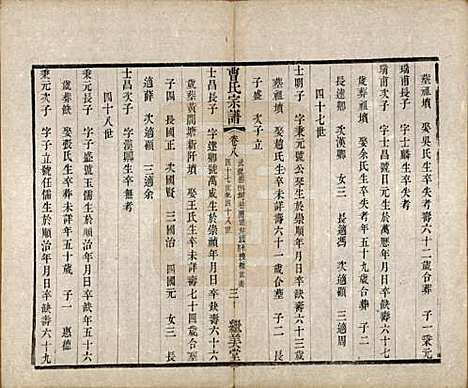 墓祖墳　娶吳氏生卒失考年六十二歲合葬　子一秉元
瑞甫長子　字士麟生卒失考
瑞甫次子　字士昌號日元生於萬歷年月日卒缺壽六十七
歲葬祖墳　娶余氏生卒失考年五十九歲合葬　子二
長達卿　次漢卿　女二　長適馮　次適顧　三適周
四十七世
士朋子　字秉元號公琴生於年月日卒缺壽六十三歲
葬祖墳　娶趙氏生卒未詳壽六十一歲合墓　子二　長
子盛　次子立
曹氏宗譜
卷八
四十七世至四十八世
三
繼美堂
士昌長子　字達卿號萬成生於崇禎年月日卒缺壽六十六
歲葬黃閣塘新阡墳　娶王氏生卒未詳壽七十四歲合葬
子四　長國正　次國賢　三國治　四國元　女三　長
適薛　次適顧　三適余
士昌次子　字漢卿生卒無考
四十八世
秉元長子　字子盛號玉儒生於順治年月日卒缺壽五十九
歲葬缺　娶張氏生卒葬未詳年五十歲　子一　惠德
秉元次子　字子立號任儒生於順治年月日卒缺壽六十九